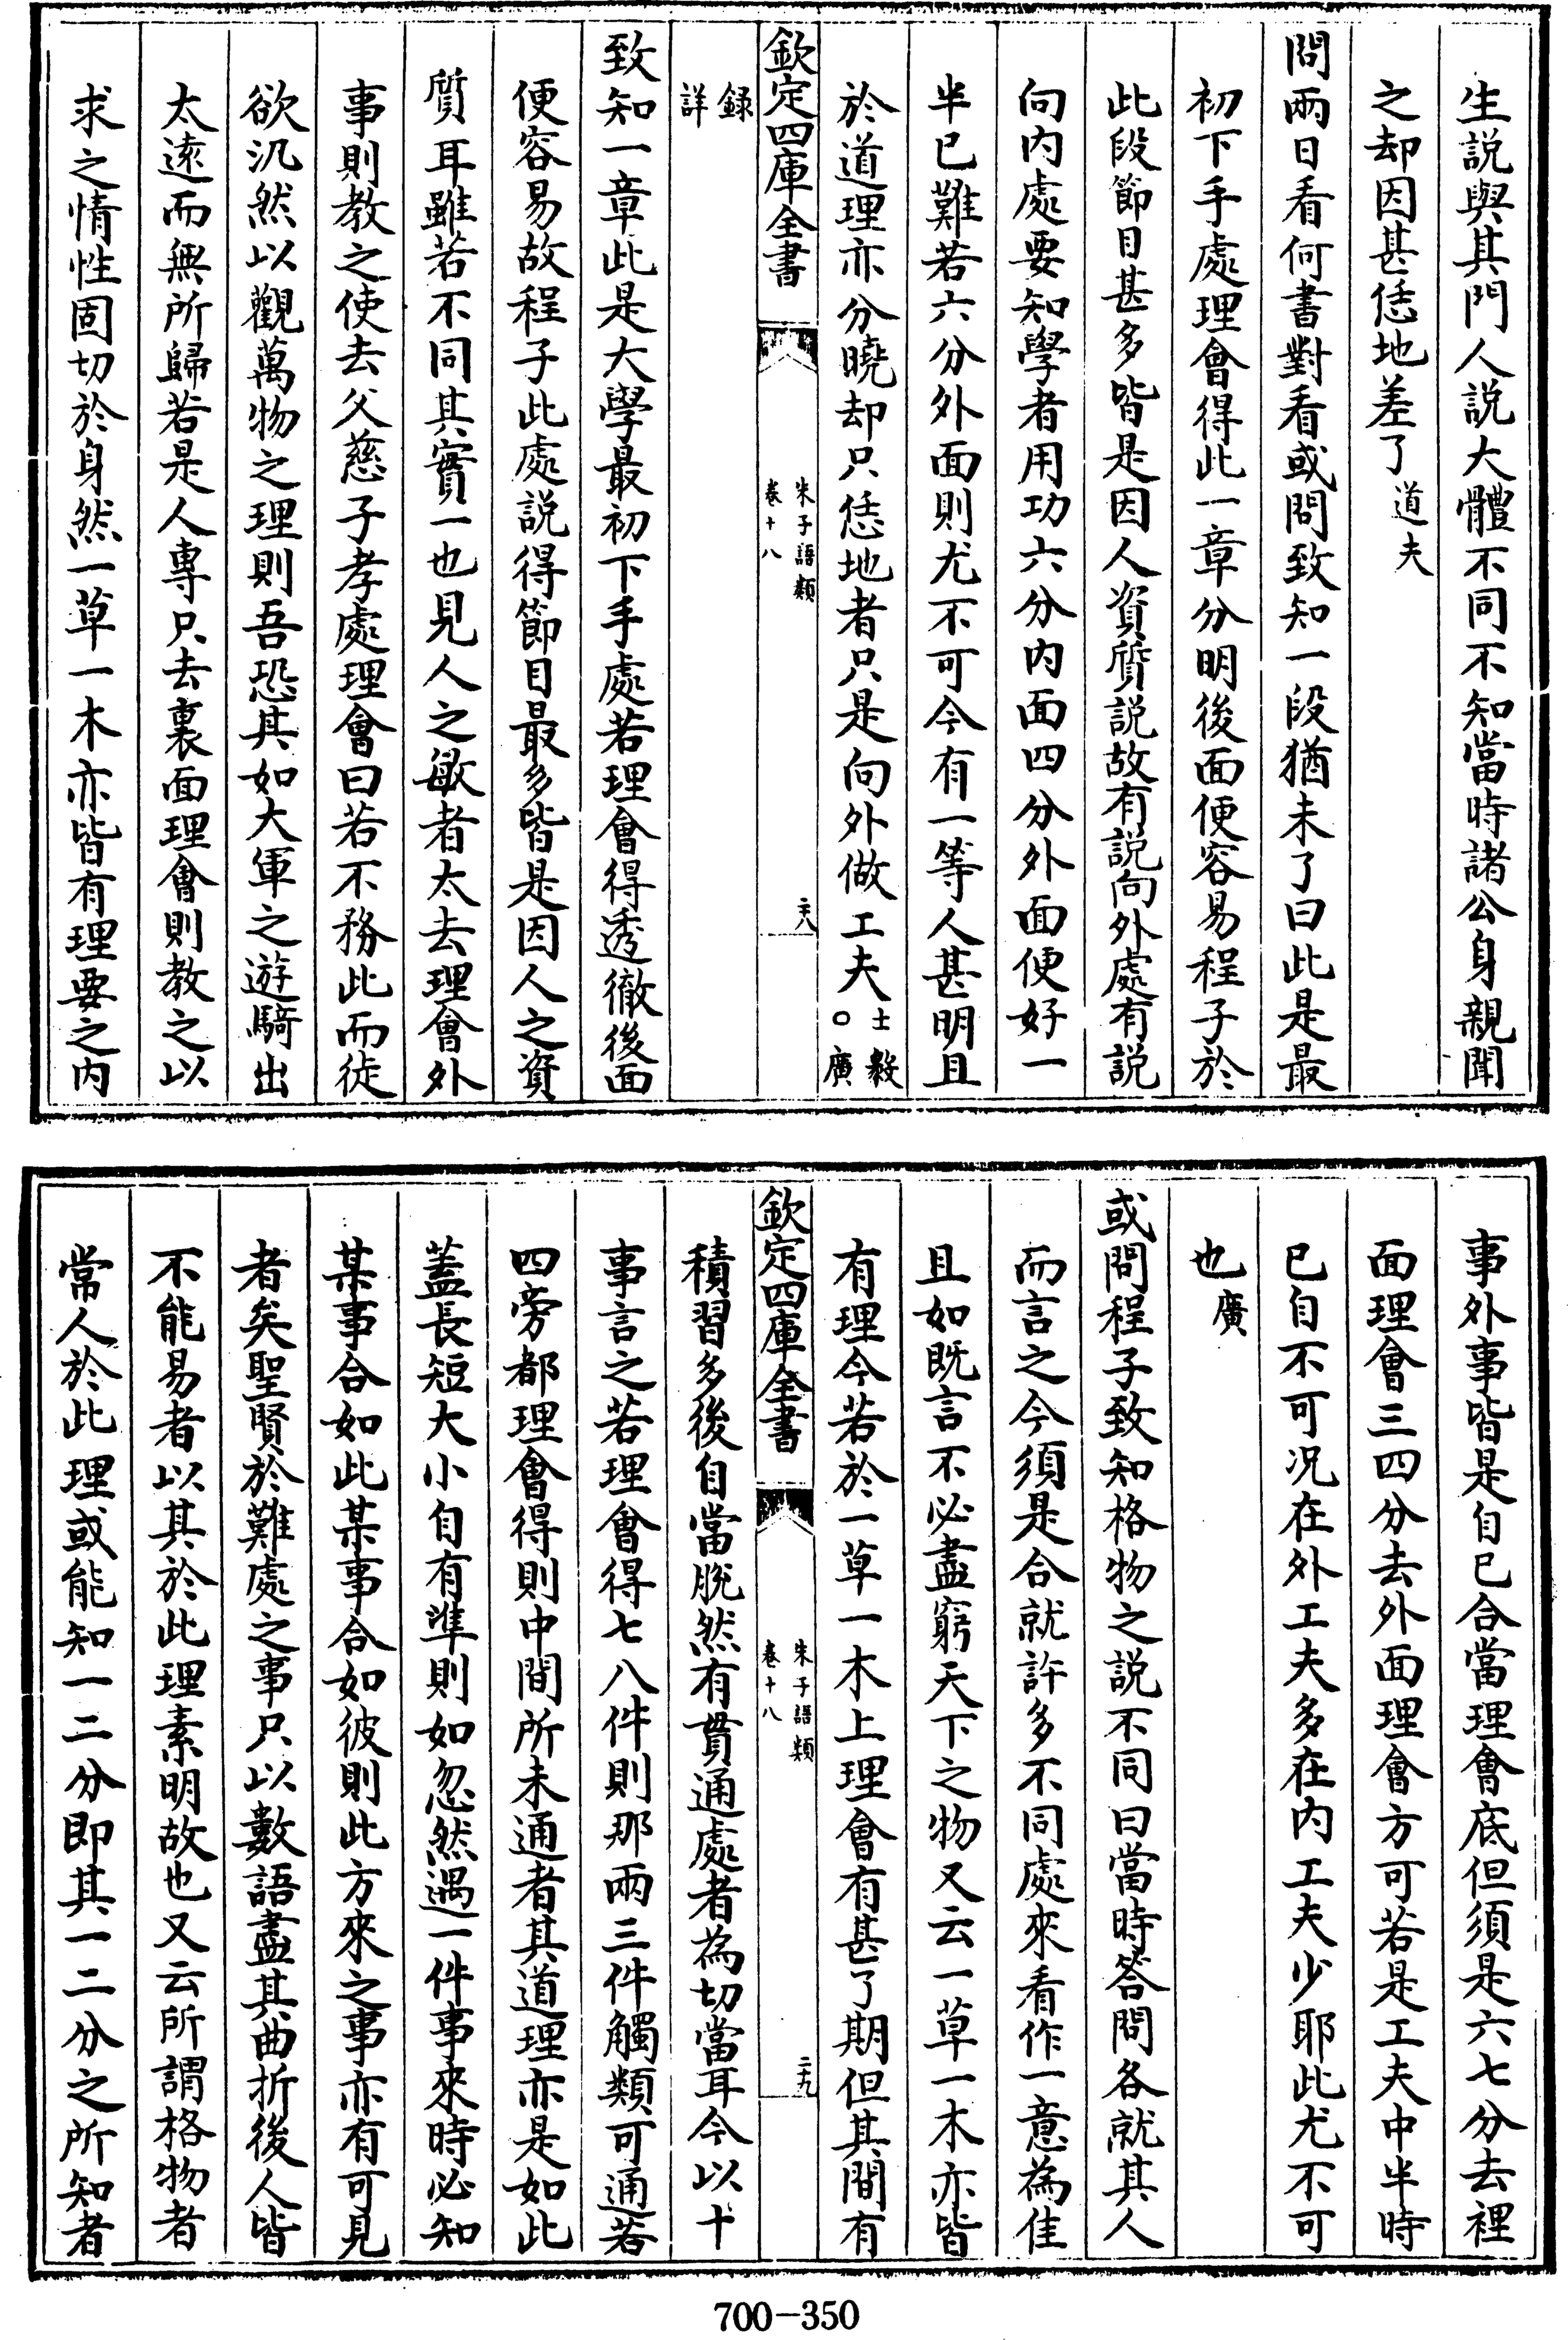 生說與其門人說大體不同不知當時諸公身親聞
之却因甚恁地差了道夫
問兩日看何書對看或問致知一段猶未了曰此是最
初下手處理會得此一章分明後面便容易程子於
此段節目甚多皆是因人資質說故有說向外處有說
向內處要知學者用功六分內面四分外面便好一
半已難若六分外面則尤不可今有一等人甚明且
於道理亦分曉却只恁地者只是向外做工夫士毅○廣
欽定四庫全書
朱子語類
卷十八
二十八
錄詳
致知一章此是大學最初下手處若理會得透徹後面
便容易故程子此處說得節目最多皆是因人之資
質耳雖若不同其實一也見人之敏者太去理會外
事則教之使去父慈子孝處理會曰若不務此而徒
欲汎然以觀萬物之理則吾恐其如大軍之遊騎出
太遠而無所歸若是人專只去裏面理會則教之以
求之情性固切於身然一草一木亦皆有理要之內
事外事皆是自已合當理會底但須是六七分去裡
面理會三四分去外面理會方可若是工夫中半時
已自不可况在外工夫多在內工夫少耶此尤不可
也廣
或問程子致知格物之說不同曰當時答問各就其人
而言之今須是合就許多不同處來看作一意為佳
且如既言不必盡窮天下之物又云一草一木亦皆
有理今若於一草一木上理會有甚了期但其間有
欽定四庫全書
朱子語類
卷十八
二十九
積習多後自當脫然有貫通處者為切當耳今以十
事言之若理會得七八件則那兩三件觸類可通若
四旁都理會得則中間所未通者其道理亦是如此
蓋長短大小自有準則如忽然遇一件事來時必知
某事合如此某事合如彼則此方來之事亦有可見
者矣聖賢於難處之事只以數語盡其曲折後人皆
不能易者以其於此理素明故也又云所謂格物者
常人於此理或能知一二分即其一二分之所知者
700-350